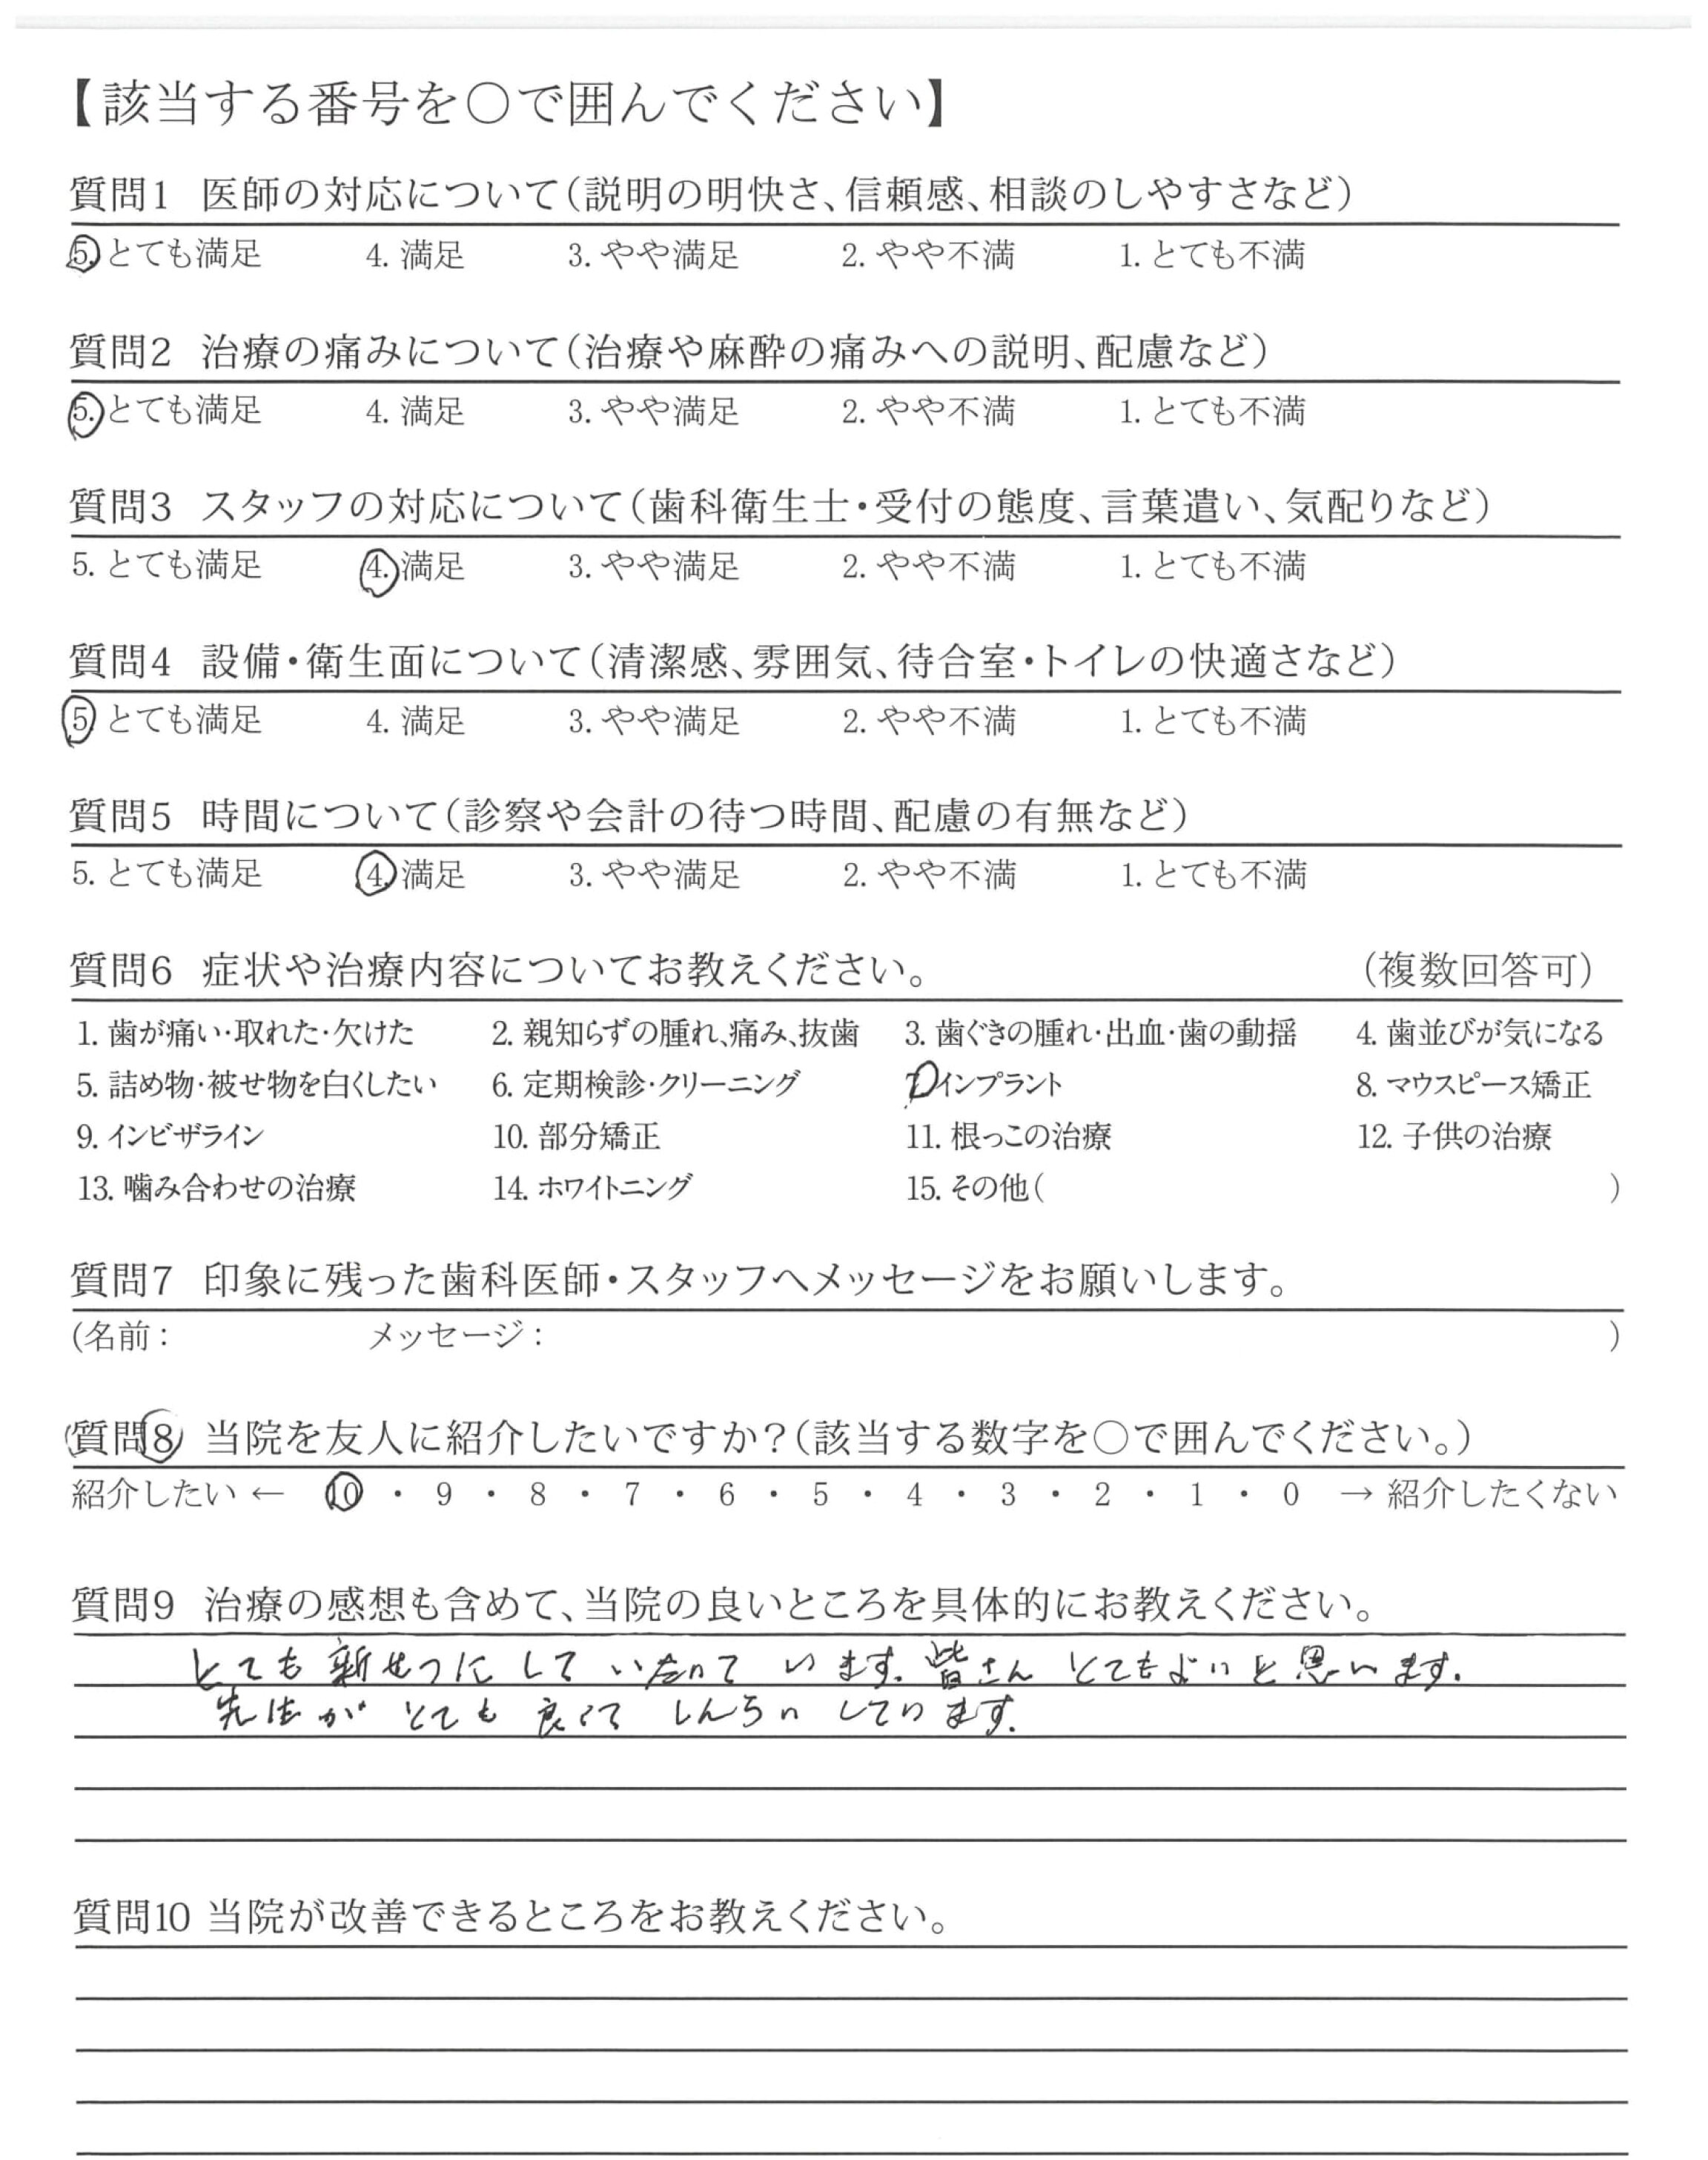 【該当する番号を○で囲んでください】
質問1 医師の対応について(説明の明快さ、信頼感、相談のしやすさなど)
5. とても満足 4. 満足 3. やや満足 2. やや不満 1. とても不満
質問2 治療の痛みについて(治療や麻酔の痛みへの説明、配慮など)
5. とても満足 4. 満足 3. やや満足 2. やや不満 1. とても不満
質問3 スタッフの対応について(歯科衛生士・受付の態度、言葉遣い、気配りなど)
5. とても満足 4. 満足 3. やや満足 2. やや不満 1. とても不満
質問4 設備・衛生面について(清潔感、雰囲気、待合室・トイレの快適さなど)
5. とても満足 4. 満足 3. やや満足 2. やや不満 1. とても不満
質問5 時間について(診察や会計の待つ時間、配慮の有無など)
5. とても満足 4. 満足 3. やや満足 2. やや不満 1. とても不満
質問6 症状や治療内容についてお教えください。 (複数回答可)
1. 歯が痛い・取れた・欠けた 2. 親知らずの腫れ、痛み、抜歯 3. 歯ぐきの腫れ・出血・歯の動揺 4. 歯並びが気になる
5. 詰め物・被せ物を白くしたい 6. 定期検診・クリーニング 7. インプラント 8. マウスピース矯正
9. インビザライン 10. 部分矯正 11. 根っこの治療 12. 子供の治療
13. 噛み合わせの治療 14. ホワイトニング 15. その他( )
質問7 印象に残った歯科医師・スタッフへメッセージをお願いします。
(名前： メッセージ： )
質問8 当院を友人に紹介したいですか?(該当する数字を○で囲んでください。)
紹介したい ← 10 ・ 9 ・ 8 ・ 7 ・ 6 ・ 5 ・ 4 ・ 3 ・ 2 ・ 1 ・ 0 → 紹介したくない
質問9 治療の感想も含めて、当院の良いところを具体的にお教えください。
とても新せつにして います。皆さん とてもよいと思います。
先生が とても 良くて しんらい しています。
質問10 当院が改善できるところをお教えください。